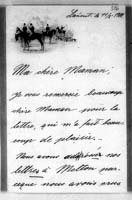 Ma chère Maman,
je vous remercie beaucoup
chère Maman pour la
lettre, qui m'a fait beau-
coup de plaisir.
Nous avons adressé nos
lettres à Melton par-
ceque nous avions